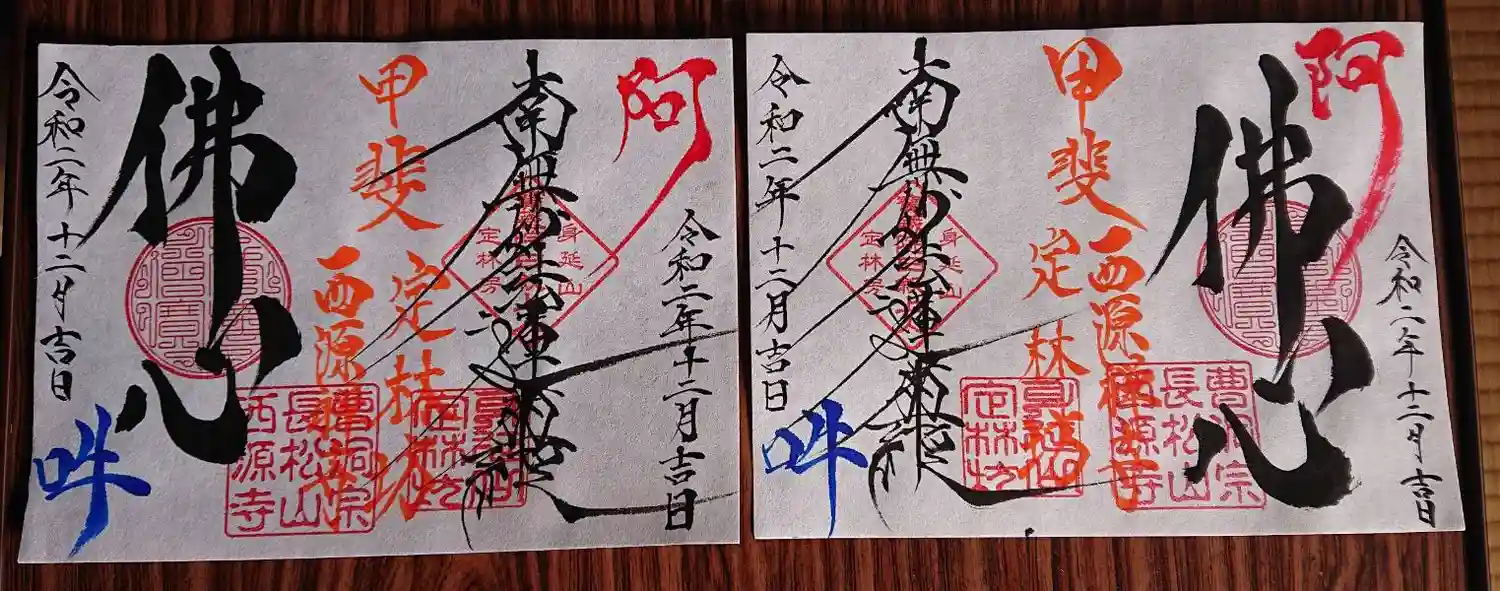 阿
令和二年十二月吉日
佛心
曹洞宗
長松山
西源寺
甲斐
西源
定林坊
身延山
定林坊
南無妙法蓮華経
身延山
定林坊
令和二年十二月吉日
吽
阿
令和二年十二月吉日
南無妙法蓮華経
身延山
定林坊
身延山
定林坊
甲斐
定林坊
西源
曹洞宗
長松山
西源寺
佛心
令和二年十二月吉日
吽